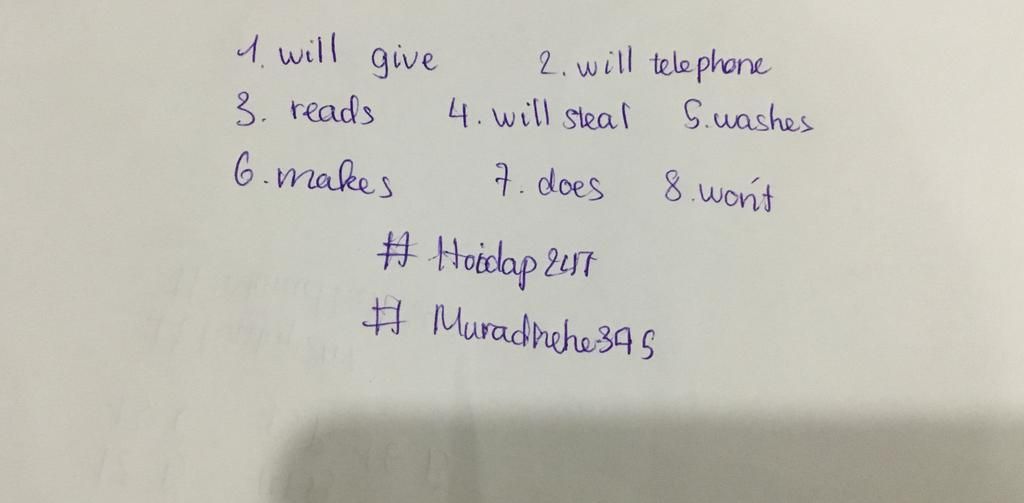 1. will give 2. will telephone
3. reads 4. will steal 5. washes
6. makes 7. does 8. won't
# Hoidap247
# Muradnehe345